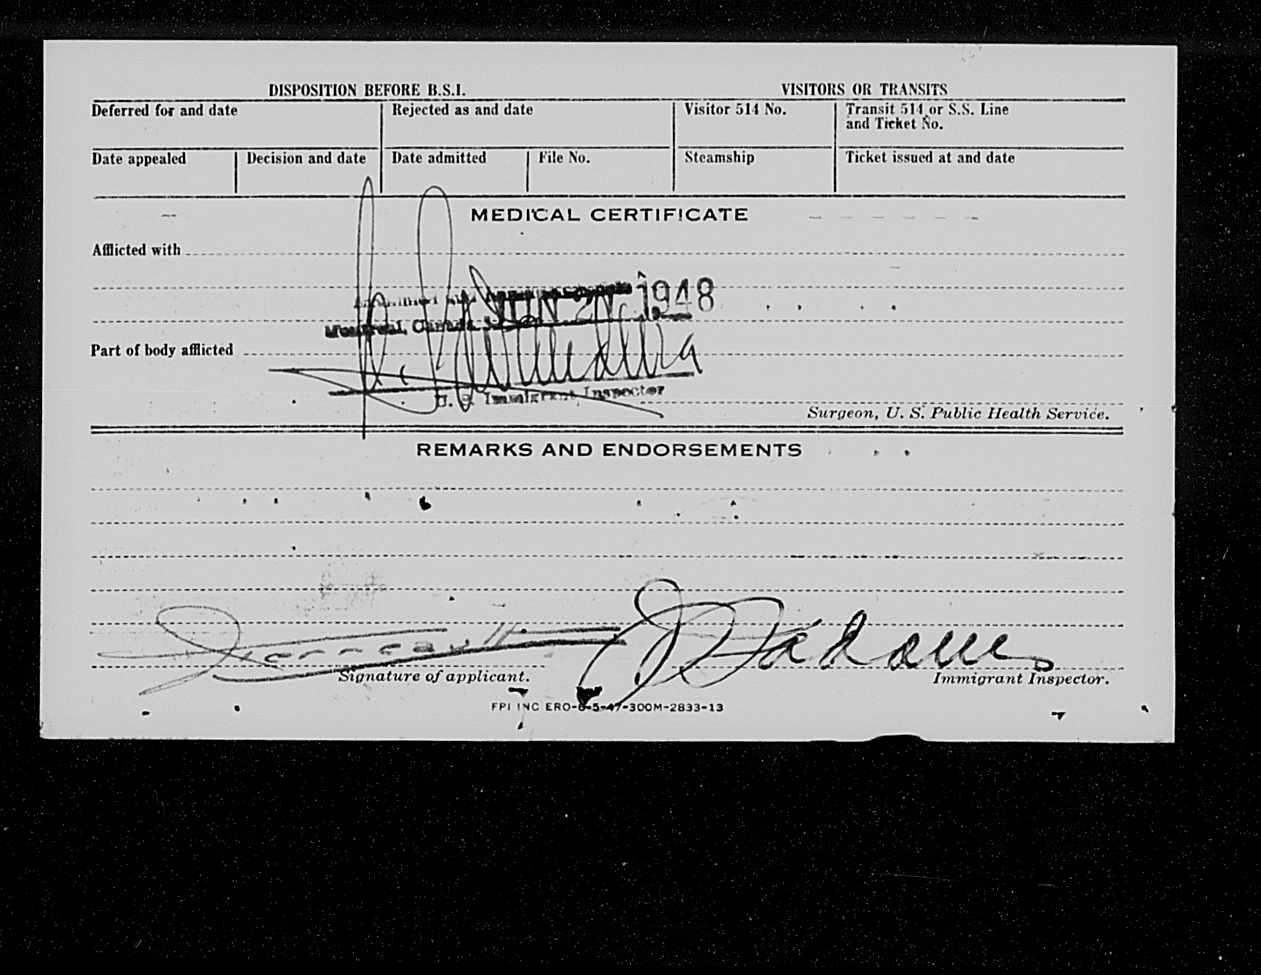 DISPOSITION BEFORE B.S.I. VISITORS OR TRANSITS
Deferred for and date Rejected as and date Visitor 514 No. Transit 514 or S.S. Line and Ticket No.
Date appealed Decision and date Date admitted File No. Steamship Ticket issued at and date
MEDICAL CERTIFICATE
Afflicted with
JUN 1948
Montreal, Canada
Part of body afflicted
U. S. Immigrant Inspector
Surgeon, U. S. Public Health Service.
REMARKS AND ENDORSEMENTS
Signature of applicant. Immigrant Inspector.
FPI INC ERO-6-5-47-300M-2833-13